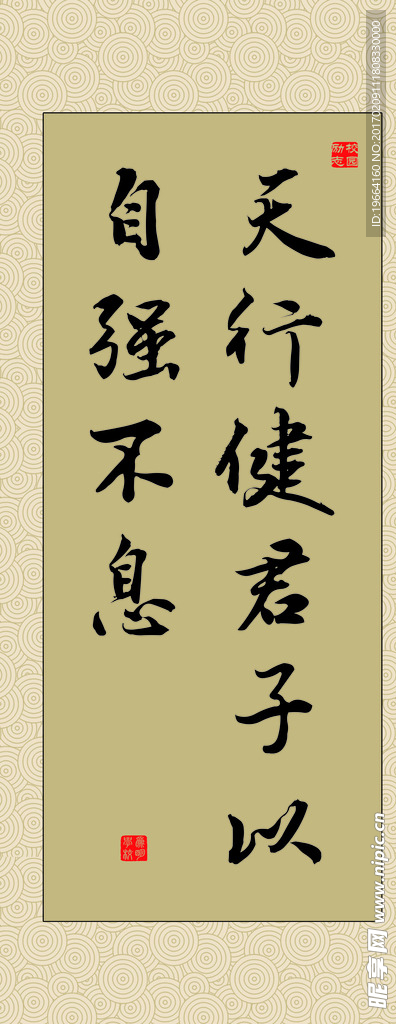 天行健君子以
自强不息
校园
励志
ID:19664160 NO:20170209111808330000
昵享网 www.nipic.cn